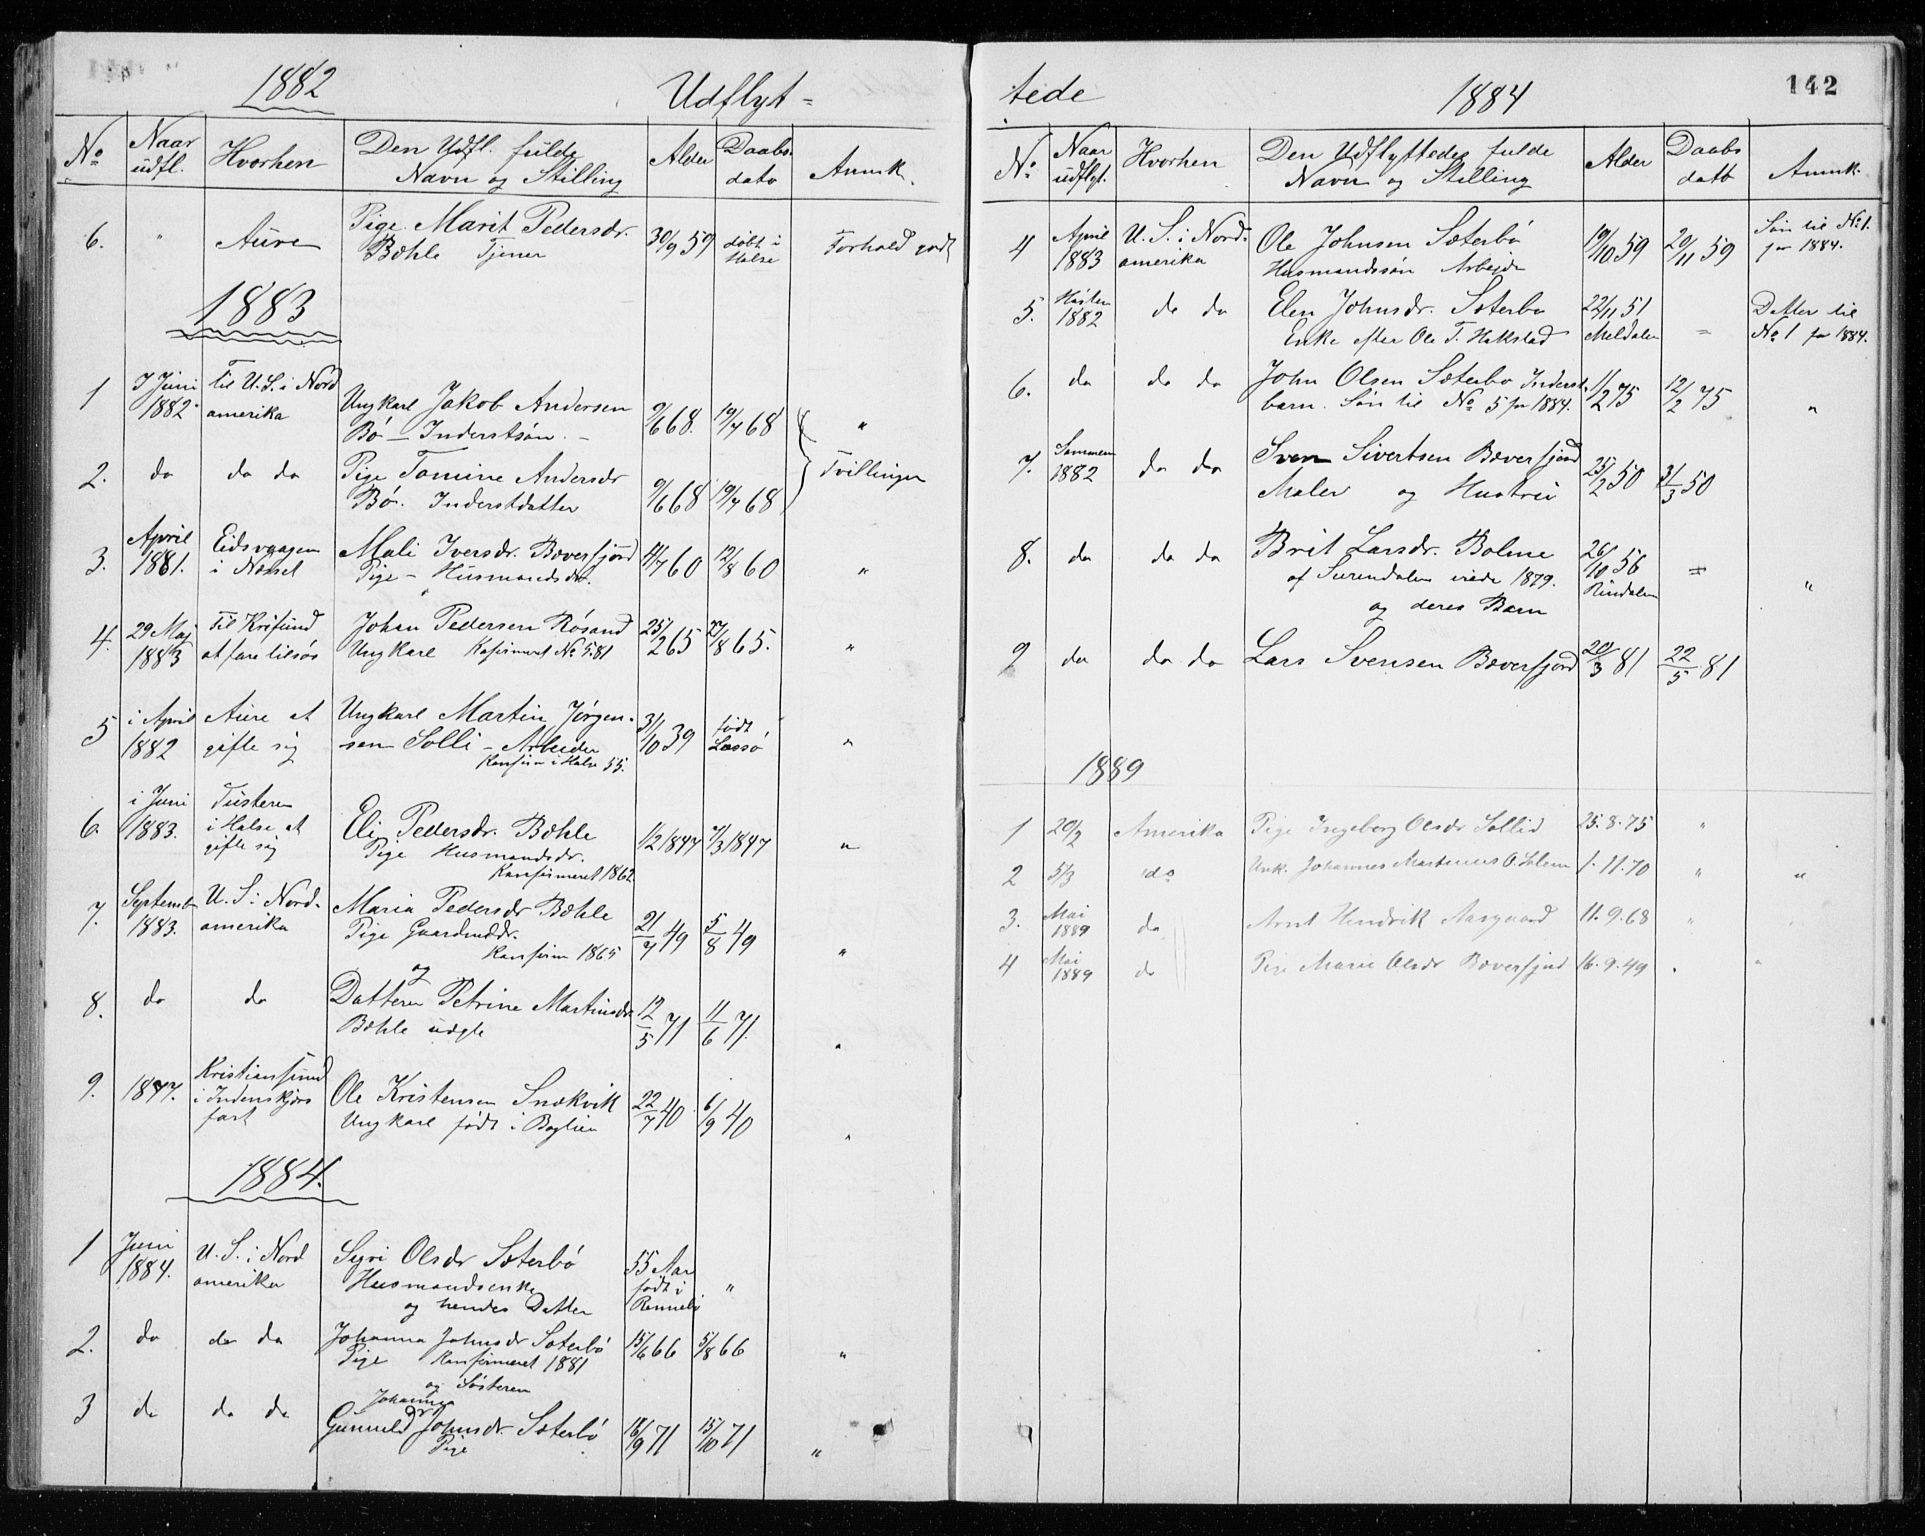 1882 Udflyt=
No Naar udfl. Hvorhen Den Udfl. fulde Navn og Stilling Alder Daabs dato Anmk.
6. " Aure Pige Marit Pedersdr. 30/9 59 døbt i Forhold godt
Bæhle Tjener Halse
1883
1 7 Juni Til U.S. i Nord Ungkarl Jakob Andersen 9/6 68. 19/7 68 "
1882. amerika Bø - Inderstsøn. -
2. do do do Pige Tomine Andersdr 9/6 68 19/7 68 Tvillinger
Bø. Inderstdatter
3. April Eidsvaagen Mali Iversdr. Bøverfjord 4/7 60 12/8 60 "
1881. i Nesset Pige - Husmandsdr.
4. 29 Maj Til Krisund Johan Pedersen Røsand 25/2 65 27/8 65. "
1883 at fare tilsøs Ungkarl Kofirmeret No 5. 81
5 i April Aure at Ungkarl Martin Jørgen- 31/10 39 født "
1882 gifte sig sen Solli - Arbeider Lessø
Konfirm i Halse 55.
6. i Juni Tusteren Eli Pedersdr. Bæhle 1/2 1847 7/3 1847 "
1883. i Halse at Pige Husmandsdr.
gifte sig Konfirmeret 1862
7. Septemb U.S. i Nord- Maria Pedersdr Bæhle 21/7 49 5/8 49 "
1883. amerika Pige Gaardmddr.
Konfirm 1865
og
8. do do Datteren Petrine Martinsdr 12/5 71 11/6 71. "
Bæhle udgte
9. 1877. Kristiansund Ole Kristensen Snekvik 22/7 40 6/9 40 "
i Indenskjærs Ungkarl født i Boglien
fart
1884.
1 Juni U.S. i Nord Siri Olsdr Sæterbø 55 Aar "
1884. amerika Husmandsenke født i
og hendes Datter Rennebo
2. do do do Johanna Johnsdr Sæterbø 15/6 66 5/8 66 "
Pige Konfirmeret 1881
og Søsteren
Johanna
3 do do do Gunnild Johnsdr. Sæterbø 18/9 71 15/10 71 "
Pige
tede 1884 142
No Naar udflyt. Hvorhen Den Udflyttedes fulde Navn og Stilling Alder Daabs datb Anmk.
4 April U.S. i Nord- Ole Johnsen Sæterbø 19/10 59 20/11 59 Søn til No 1.
1883 amerika Husmandssøn Arbejde for 1884.
5. Høsten do do Elen Johnsdr. Sæterbø 22/11 51 = Datter til
1882 Enke efter Ole T. Hakstad Meldalen No 1 for 1884.
6. do do do John Olsen Sæterbø Inderst- 1/2 75 12/2 75 "
barn. Søn til No 5 for 1884.
7. Sommeren do do Sven Sivertsen Bæverfjord 25/2 50 31/3 50
1882 Maler og Hustru
8. do do do Brit Larsdr. Bolme 26/10 56 = "
af Surendalen viede 1879. Rindalen
og deres Barn
9 do do do Lars Svensen Bæverfjord 20/3 81 22/5 81
1889
1 20/2 Amerika Pige Ingeborg Olsdr Sollid 25.8.75 "
2 5/3 do Unk. Johannes Martinus O. Solem 1.11.70 " "
3. Mai do Arnt Hendrik Aasgaard 11.9.68 " "
1889
4 Mai do Pige Marie Olsdr Bæverfjord 16.9.49 " "
1889